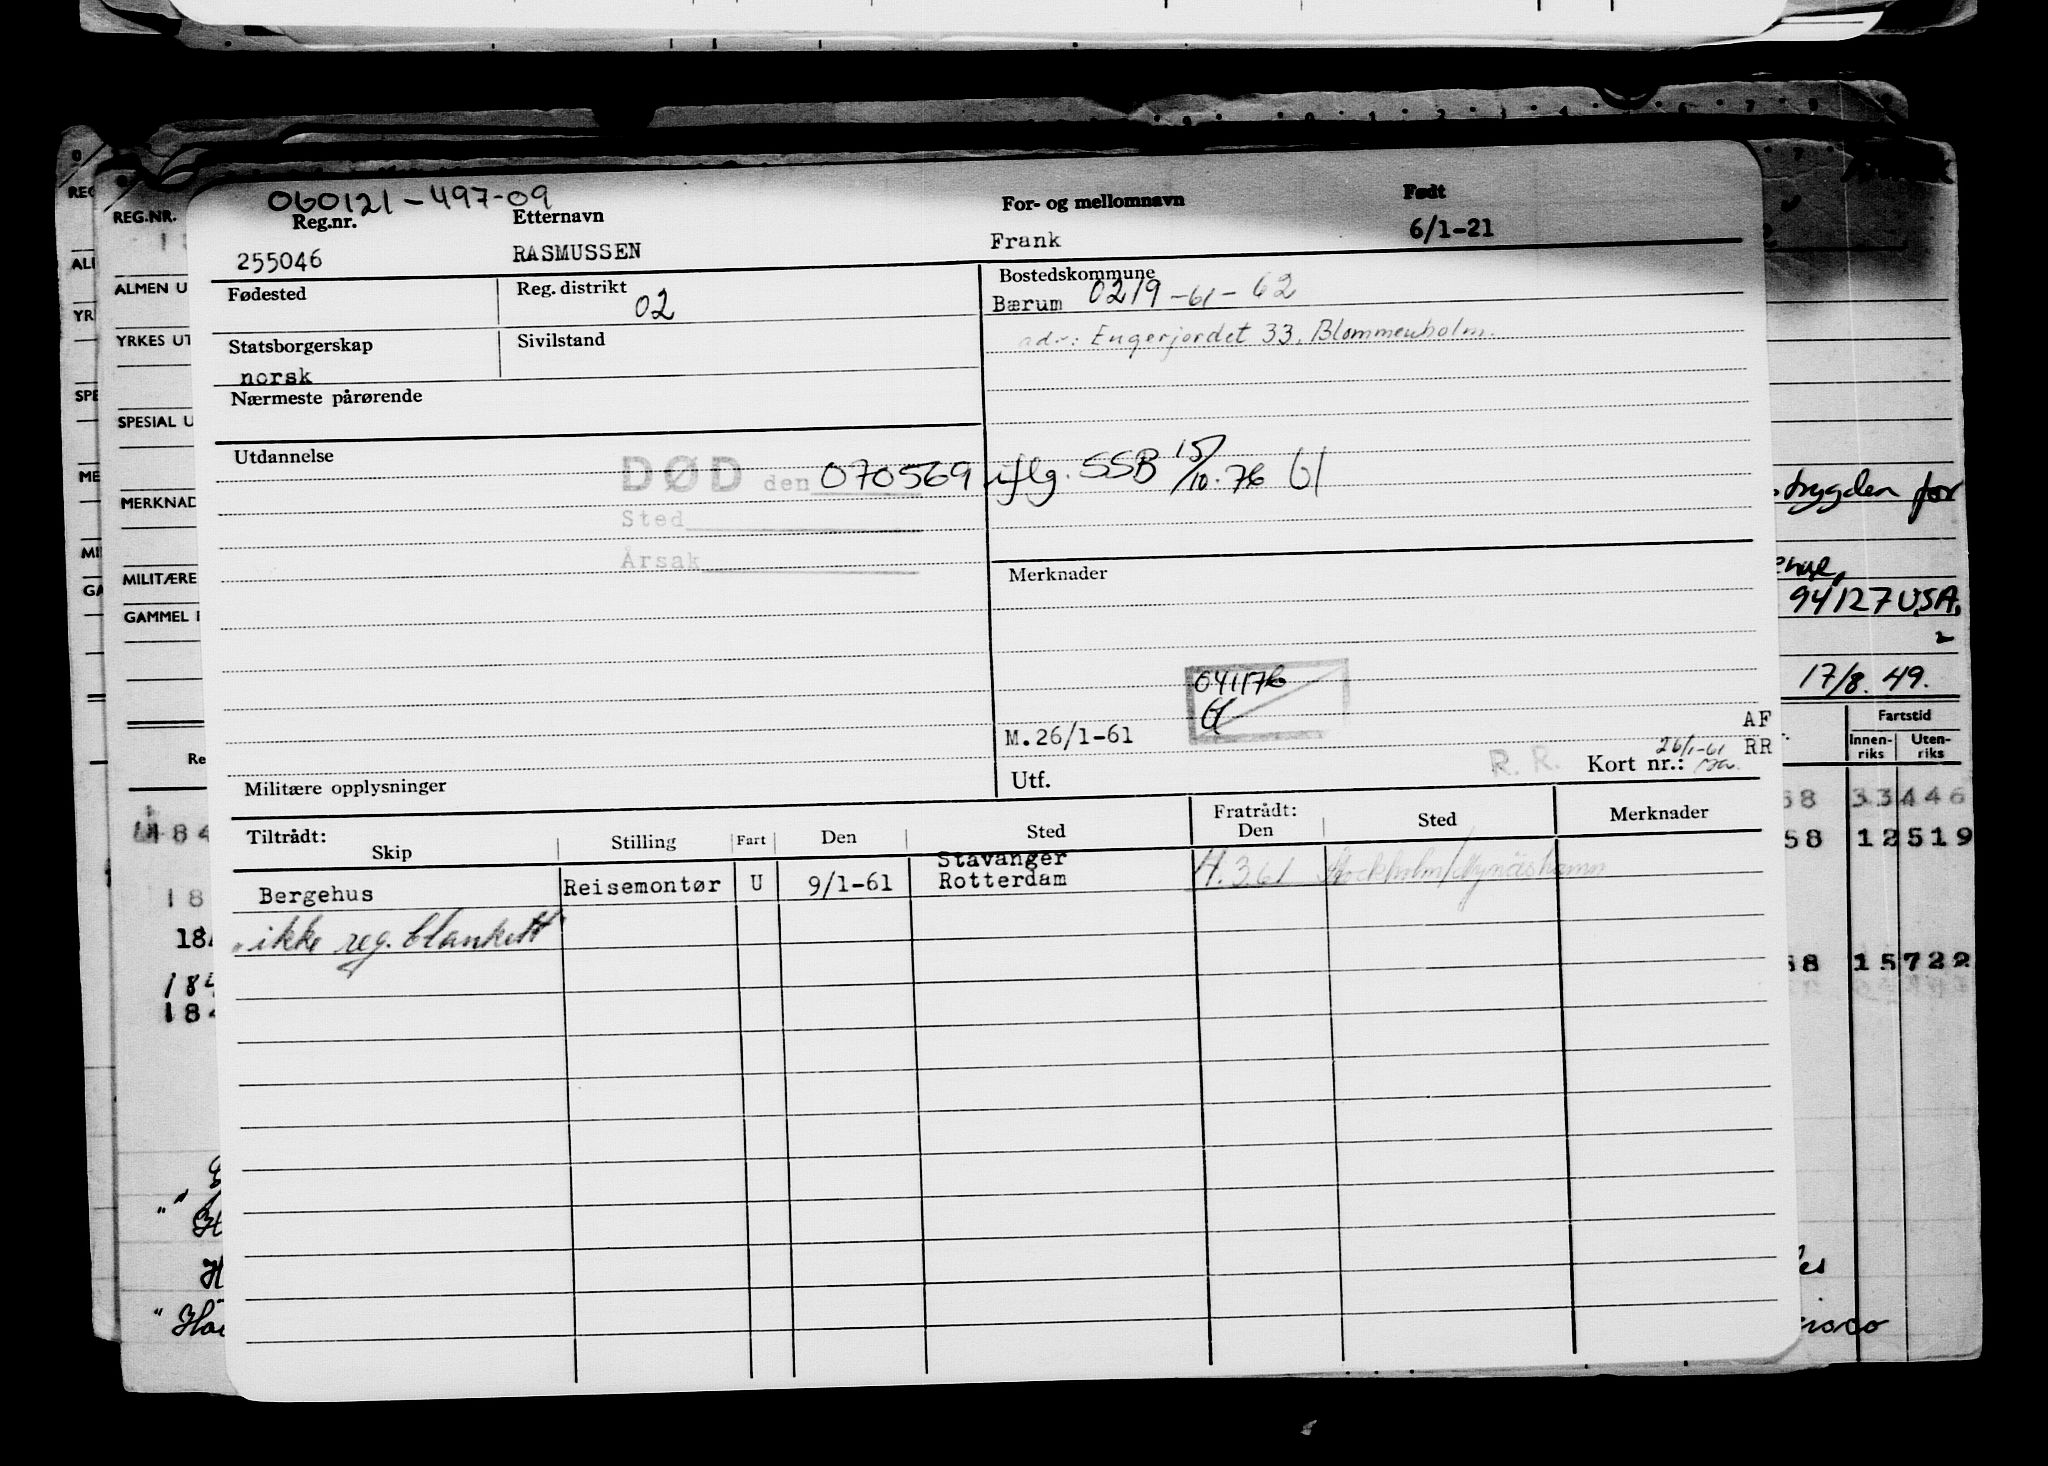 060121-497-09
Reg.nr. Etternavn For- og mellomnavn Født
255046 RASMUSSEN Frank 6/1-21
Fødested Reg. distrikt 02 Bostedskommune
Bærum 0219 -61- 62
Statsborgerskap Sivilstand adr.: Engerjordet 33, Blommenholm.
norsk
Nærmeste pårørende
Utdannelse
DØD den 070569 iflg. SSB 15/10.76
Sted
Årsak
Merknader
041176
M.26/1-61
AF
RR
R. R. Kort nr.: 26/1-61
Utf.
Militære opplysninger
Tiltrådt: Skip Stilling Fart Den Sted Fratrådt: Den Sted Merknader
Bergehus Reisemontør U 9/1-61 Stavanger Rotterdam 4.3.61 Stockholm/Nynäshamn
ikke reg. blankett
REG.NR.
ALMEN U
YRKES UT
SPESIAL U
MERKNAD
MILITÆRE
GAMMEL
94127 USA.
2
17/8.49.
Fartstid
Innen-riks Uten-riks
68 33 446
68 12 519
68 15 722